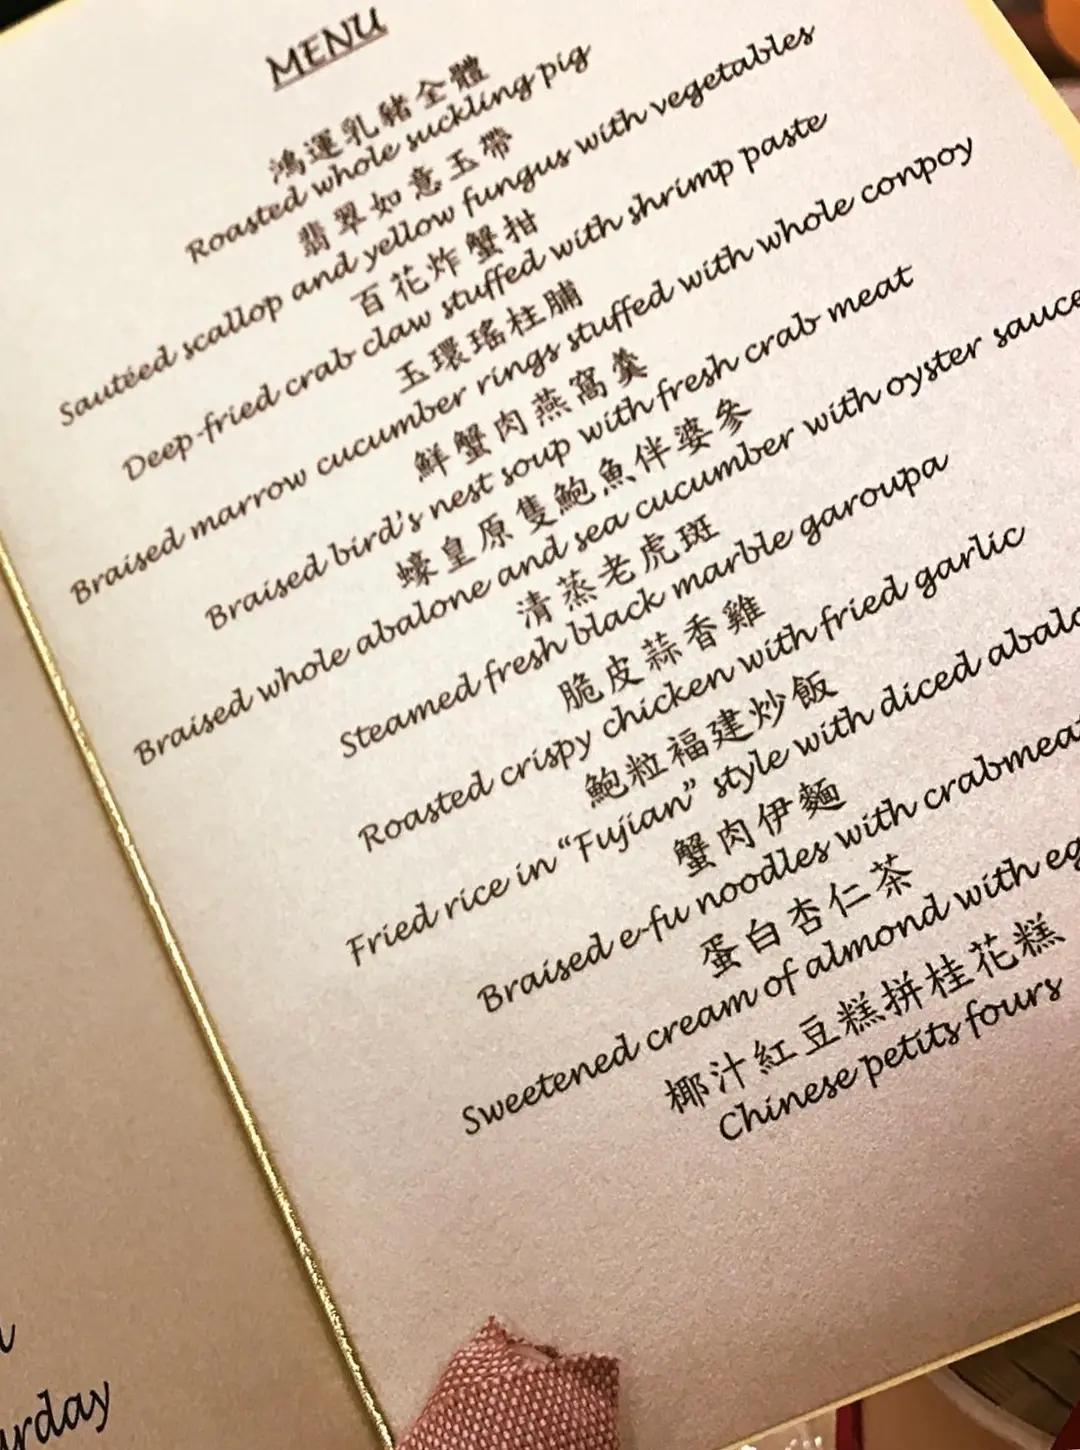 MENU
鴻運乳豬全體
Roasted whole suckling pig
翡翠如意玉帶
Sautéed scallop and yellow fungus with vegetables
百花炸蟹拑
Deep-fried crab claw stuffed with shrimp paste
玉環瑤柱脯
Braised marrow cucumber rings stuffed with whole conpoy
鮮蟹肉燕窩羹
Braised bird's nest soup with fresh crab meat
蠔皇原隻鮑魚伴婆參
Braised whole abalone and sea cucumber with oyster sauce
清蒸老虎斑
Steamed fresh black marble garoupa
脆皮蒜香雞
Roasted crispy chicken with fried garlic
鮑粒福建炒飯
Fried rice in “Fujian” style with diced abalo
蟹肉伊麵
Braised e-fu noodles with crabmeat
蛋白杏仁茶
Sweetened cream of almond with eg
椰汁紅豆糕拼桂花糕
Chinese petits fours
urday